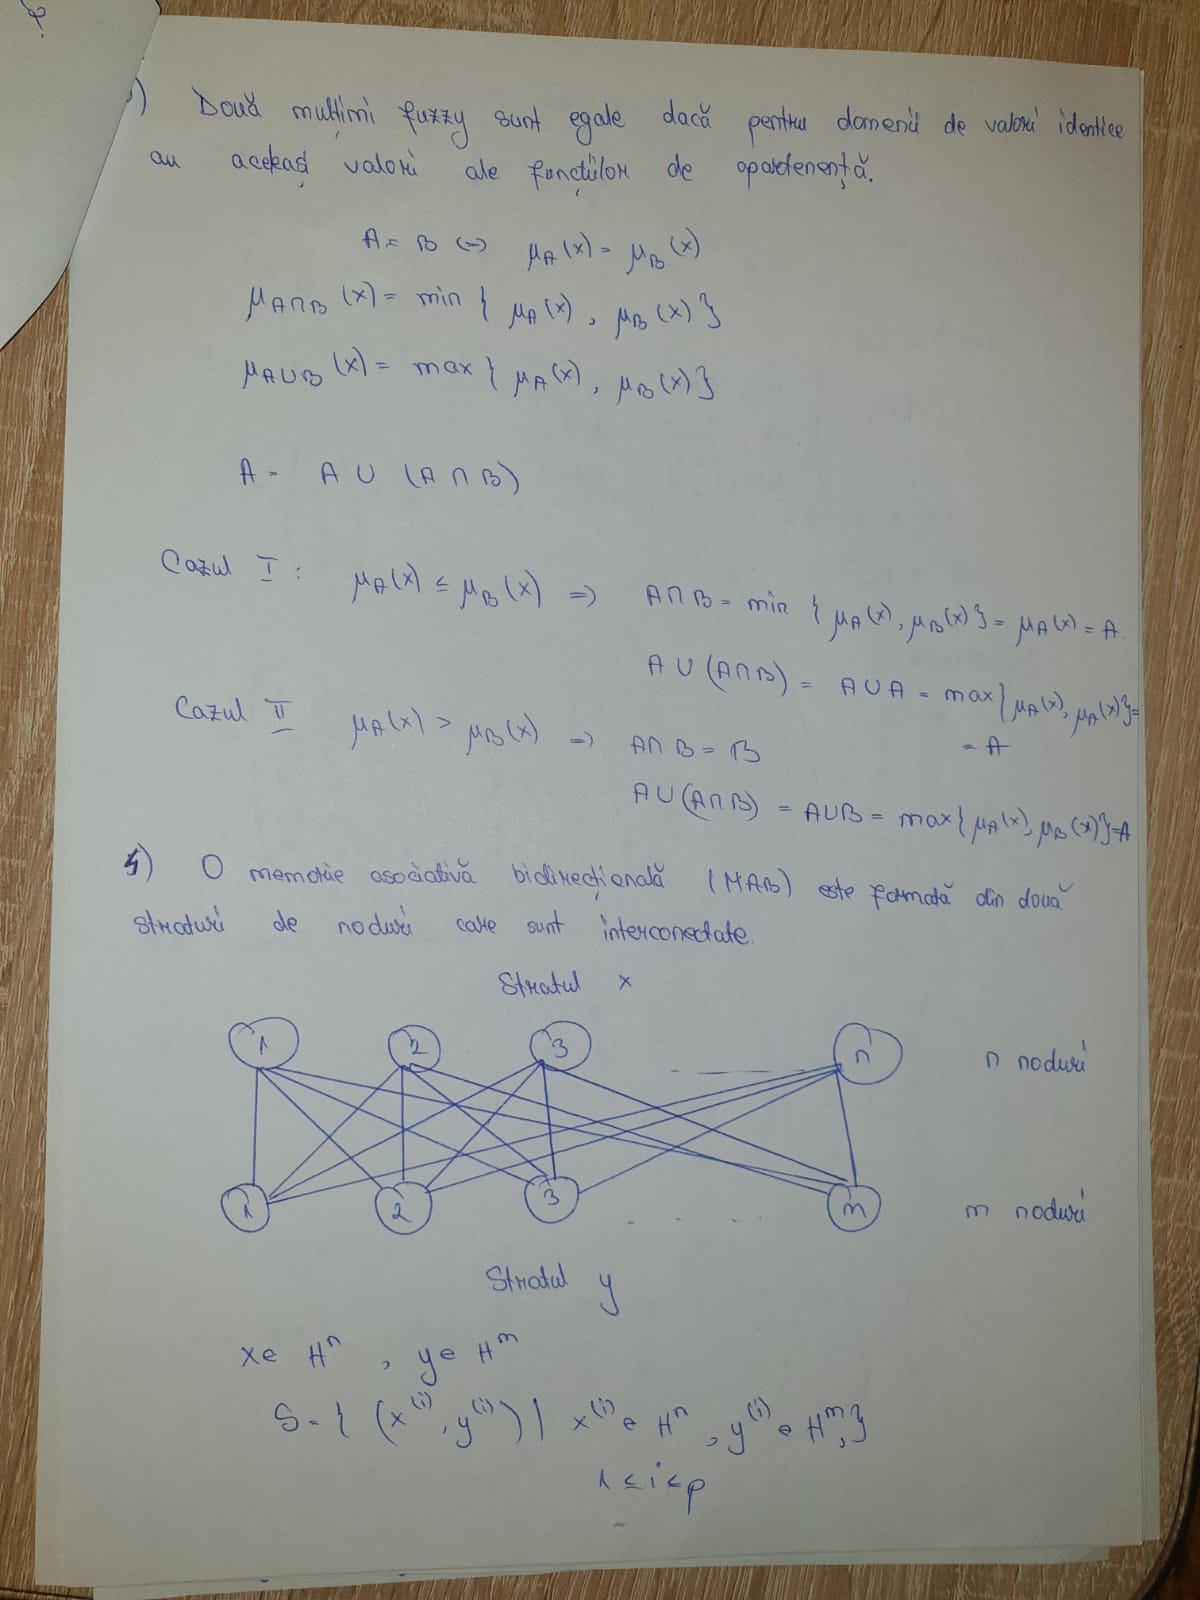 ) Două mulțimi fuzzy sunt egale dacă pentru domenii de valori identice
au aceleași valori ale funcțiilor de apartenență.
A = B <=> μ_A(x) = μ_B(x)
μ_A∩B (x) = min { μ_A(x), μ_B(x) }
μ_A∪B (x) = max { μ_A(x), μ_B(x) }
A = A ∪ (A ∩ B)
Cazul I : μ_A(x) ≤ μ_B(x) => A∩B = min { μ_A(x), μ_B(x) } = μ_A(x) = A.
A ∪ (A∩B) = A∪A = max{ μ_A(x), μ_A(x) } =
= A
Cazul II μ_A(x) > μ_B(x) => A∩B = B
A∪(A∩B) = A∪B = max{ μ_A(x), μ_B(x) } = A
4) O memorie asociativă bidirecțională (MAB) este formată din două
straturi de noduri care sunt interconectate.
Stratul x
1 2 3 n n noduri
1 2 3 . . . . m m noduri
Stratul y
x∈ H^n , y∈ H^m
S = { (x^(i), y^(i)) | x^(i) ∈ H^n , y^(i) ∈ H^m, }
1 ≤ i ≤ p